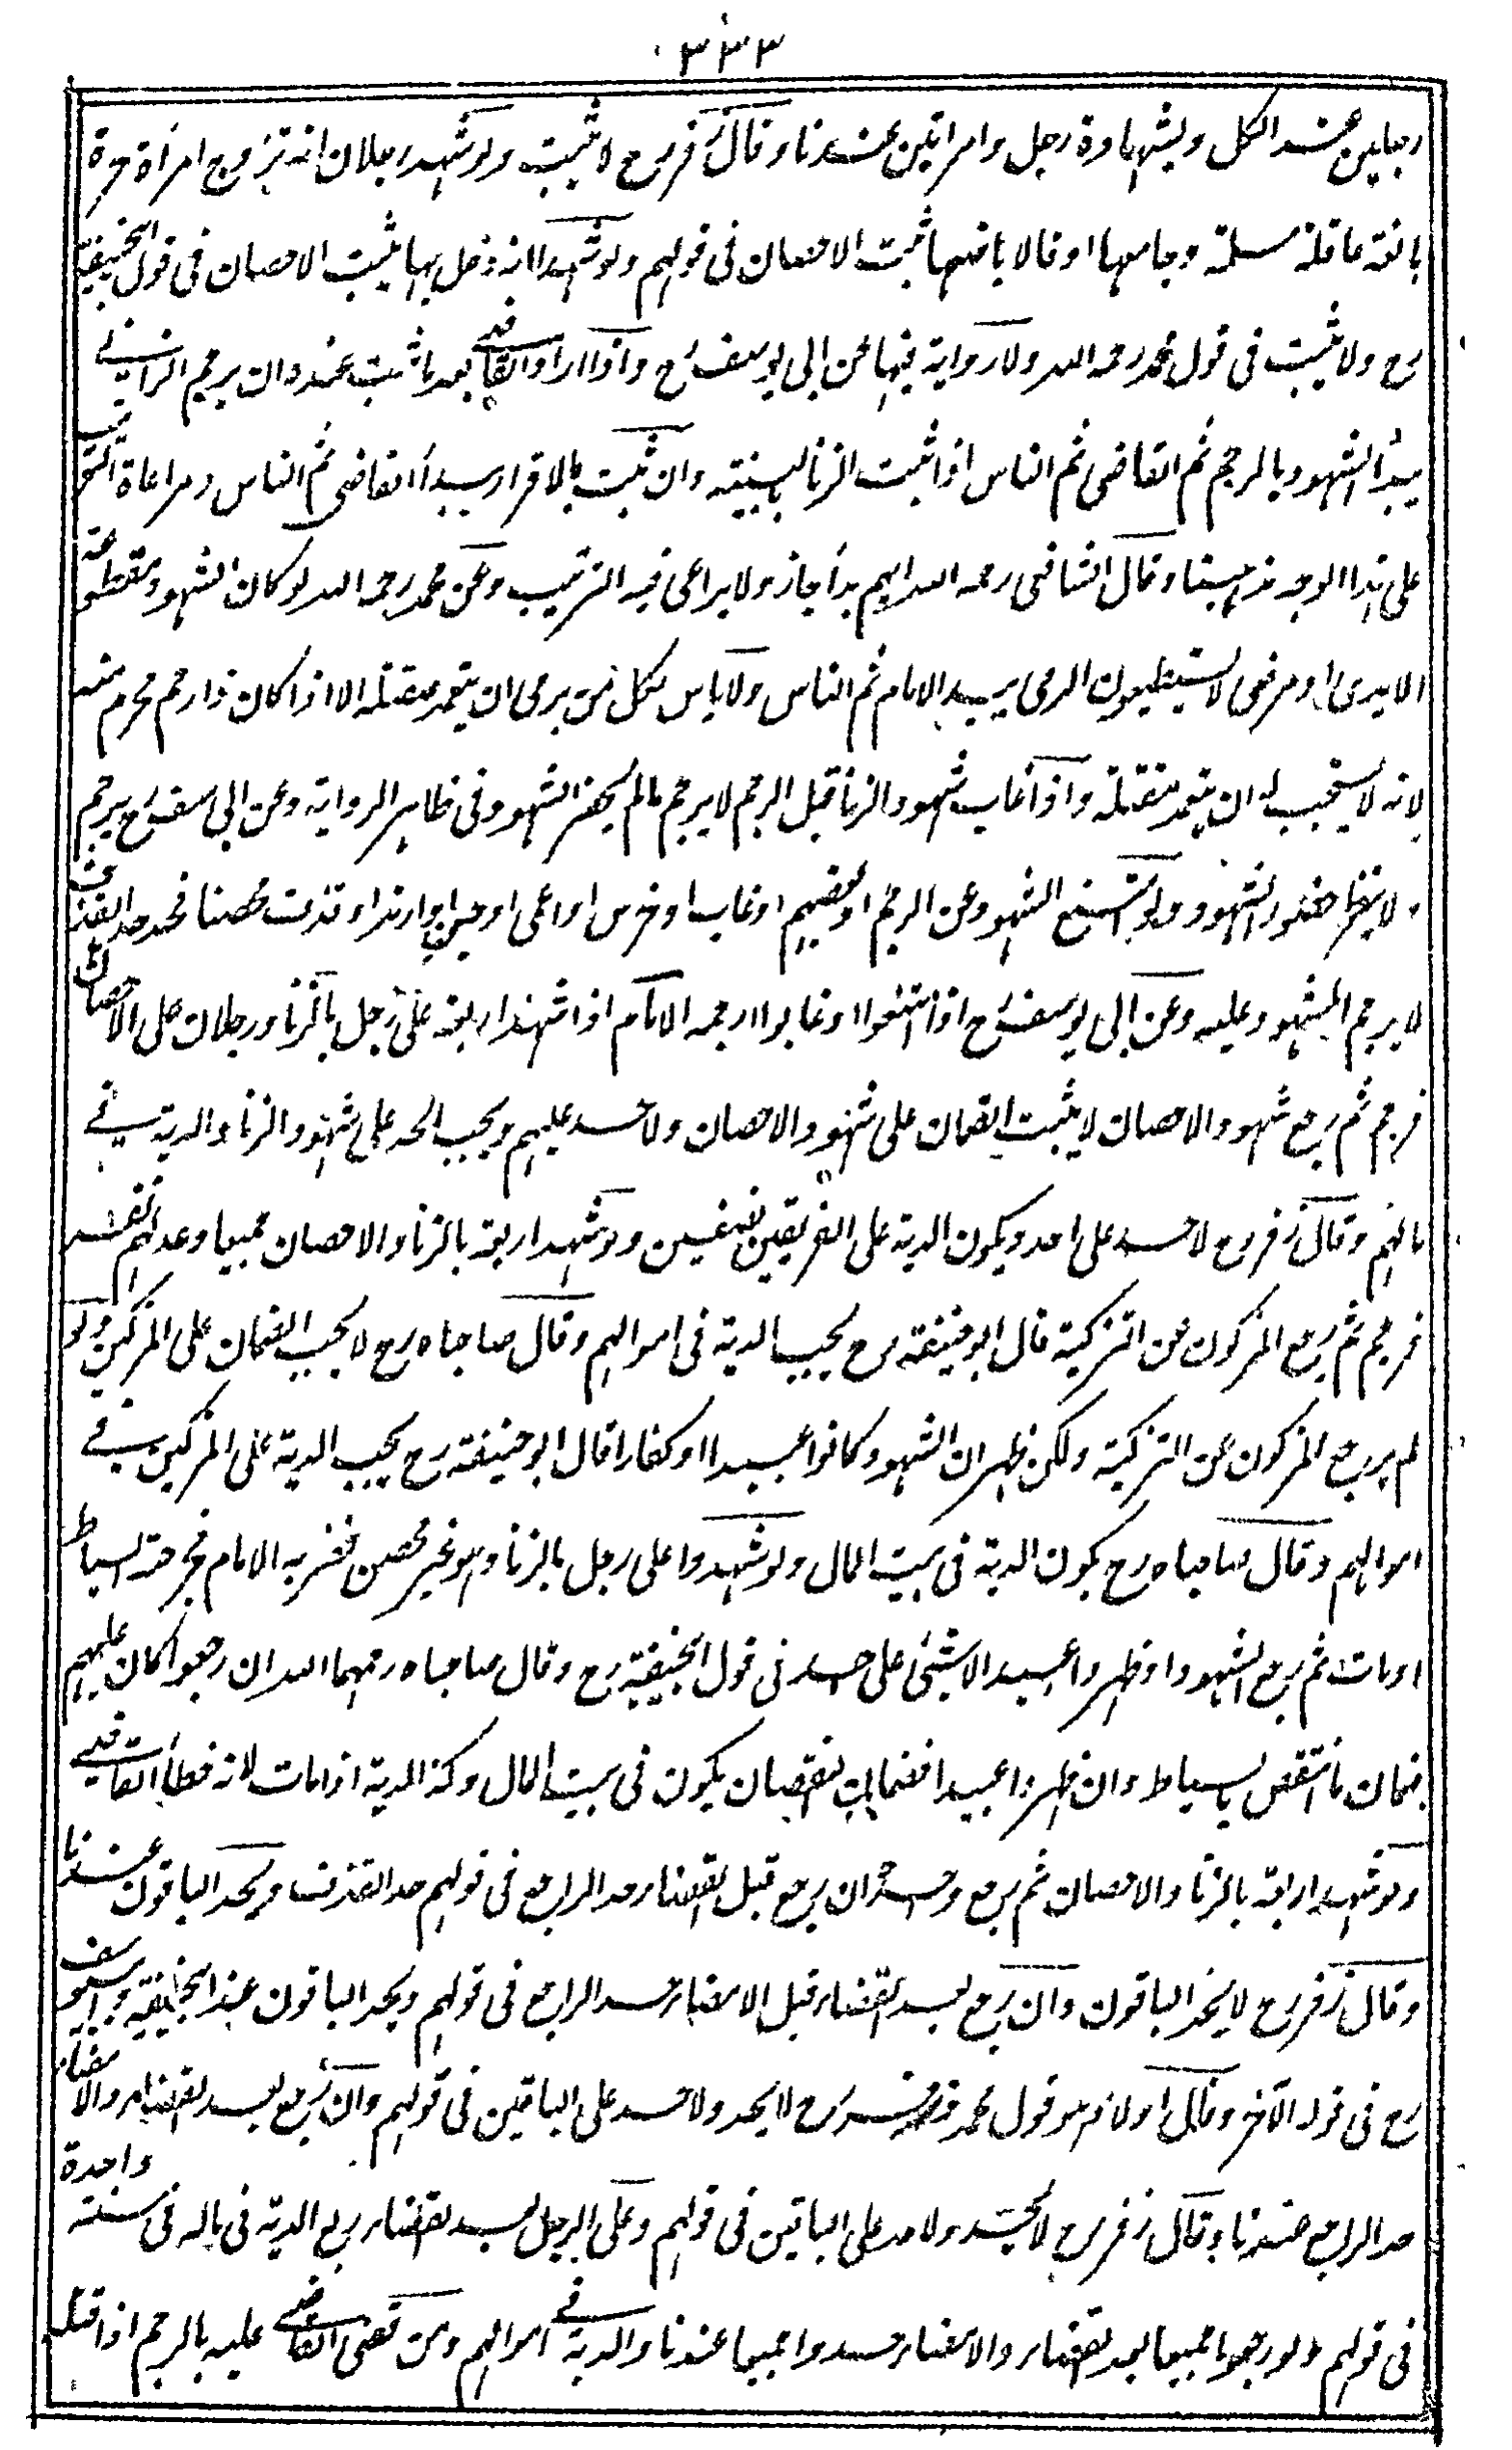 ٣٣٣
رجلين عند الكل وبشهادة رجل وامراتين عندنا وقال زفر رح لا يثبت ولو شهد رجلان انه تزوج امرأة حرة
بالغة عاقلة مسلمة وجامعها او قالا باضعها ثبت الاحصان فى قولهم ولو شهدا انه دخل بها يثبت الاحصان فى قول ابيحنيفة
رح ولا يثبت فى قول محمد رحمه الله ولا رواية فيها عن ابى يوسف رح واذا اراد القاضى بعد ما ثبت عنده ان يرجم الزانى
يبدأ الشهود بالرجم ثم القاضى ثم الناس اذا ثبت الزنا بالبينة وان ثبت بالاقرار يبدأ القاضى ثم الناس ومراعاة الترتيب
على هذا الوجه مذهبنا وقال الشافعى رحمه الله ايهم بدأ جاز ولا يراعى فيه الترتيب وعن محمد رحمه الله لو كان الشهود مقطوعة
الايدى او مرضى لا يستطيعون الرمى يبدأ الامام ثم الناس ولا باس لكل من يرمى ان يتعمد مقتله الا اذا كان ذا رحم محرم منه
لانه لا يستحب له ان يتعمد مقتله واذا غاب شهود الزنا قبل الرجم لا يرجم مالم يحضر الشهود فى ظاهر الرواية وعن ابى يوسف رح يرجم
ولا ينتظر حضور الشهود ولو امتنع الشهود عن الرجم او بعضهم او غاب او خرس او اعمى او جن او ارتد او قذف محصنا فحد حد القذف
لا يرجم المشهود عليه وعن ابى يوسف رح اذا امتنعوا او غابوا رجمه الامام اذا شهد اربعة على رجل بالزنا ورجلان على الاحصان
فرجم ثم رجع شهود الاحصان لا يثبت الضمان على شهود الاحصان ولا حد عليهم ويجب الحد على شهود الزنا والدية فى
مالهم وقال زفر رح لا حد على احد ويكون الدية على الفريقين نصفين ولو شهد اربعة بالزنا والاحصان جميعا وعدلهم نفر
فرجم ثم رجع المزكون عن التزكية قال ابو حنيفة رح يجب الدية فى اموالهم وقال صاحباه رح لا يجب الضمان على المزكين ولو
لم يرجع المزكون عن التزكية ولكن ظهر ان الشهود كانوا عبيدا او كفارا قال ابو حنيفة رح يجب الدية على المزكين فى
اموالهم وقال صاحباه رح يكون الدية فى بيت المال ولو شهدوا على رجل بالزنا وهو غير محصن فضربه الامام فجرحته السياط
او مات ثم رجع الشهود او ظهروا عبيدا لا شئ على احد فى قول ابيحنيفة رح وقال صاحباه رحمهما الله ان رجعوا كان عليهم
ضمان ما انتقص بالسياط وان ظهروا عبيدا فضمان النقصان يكون فى بيت المال وكذا الدية اذا مات لانه خطأ القاضى
ولو شهد اربعة بالزنا والاحصان ثم رجع واحد ان رجع قبل القضاء حد الراجع فى قولهم حد القذف ويحد الباقون عندنا
وقال زفر رح لا يحد الباقون وان رجع بعد القضاء قبل الامضاء حد الراجع فى قولهم ويحد الباقون عند ابيحنيفة وابى يوسف
رح فى قوله الآخر وقال اولا وهو قول محمد وزفر رح لا يحد ولا حد على الباقين فى قولهم وان رجع بعد القضاء والامضاء
حد الراجع عندنا وقال زفر رح لا يحد ولا حد على الباقين فى قولهم وعلى الرجل بعد القضاء ربع الدية فى ماله فى سنة واحدة
فى قولهم ولو رجعوا جميعا بعد القضاء والامضاء حدوا جميعا عندنا والدية فى اموالهم ومن قضى القاضى عليه بالرجم اذا قتله